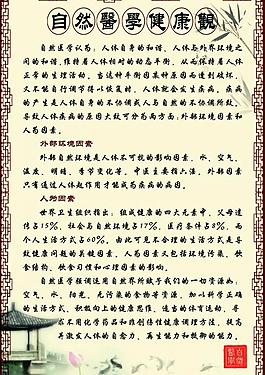 自然醫學健康觀
自然医学认为，人体自身的和谐，人体与外界环境之
间的和谐，维持着人体相对的动态平衡，从而维持着人体
正常的生理活动，当这种平衡因某种原因而遭到破坏，
人不能自行调节得以恢复时，人体就会发生疾病。疾病
的产生是人体自身的不协调或人与自然的不协调所致，
导致人体疾病的原因大致可分为两方面，外部环境因素和
人为因素。
外部环境因素
外部自然环境是人体不可抗的影响因素，水，空气，
温度，明暗，季节变化等，中医主要指六淫，外部因素
只有通过人体起作用才能成为疾病的病因。
人为因素
世界卫生组织指出，组成健康的四大元素中，父母遗
传占15%，社会与自然环境占17%，医疗条件占8%，而
个人生活方式占60%，由此可见不合理的生活方式是导
致健康问题的关键因素。人为因素又包括环境污染，饮
食结构，饮食习惯和心理因素的影响。
自然医学强调运用自然界所赋予我们的一切资源如，
空气，水，阳光，无污染的食物等资源，加以科学正确
的生活方式，积极向上的健康思维，适当的体育运动，寻
求不用化学药品和非创伤性健康调理方法，提高
并激发人体的自愈力，再生能力和抵御的能力。